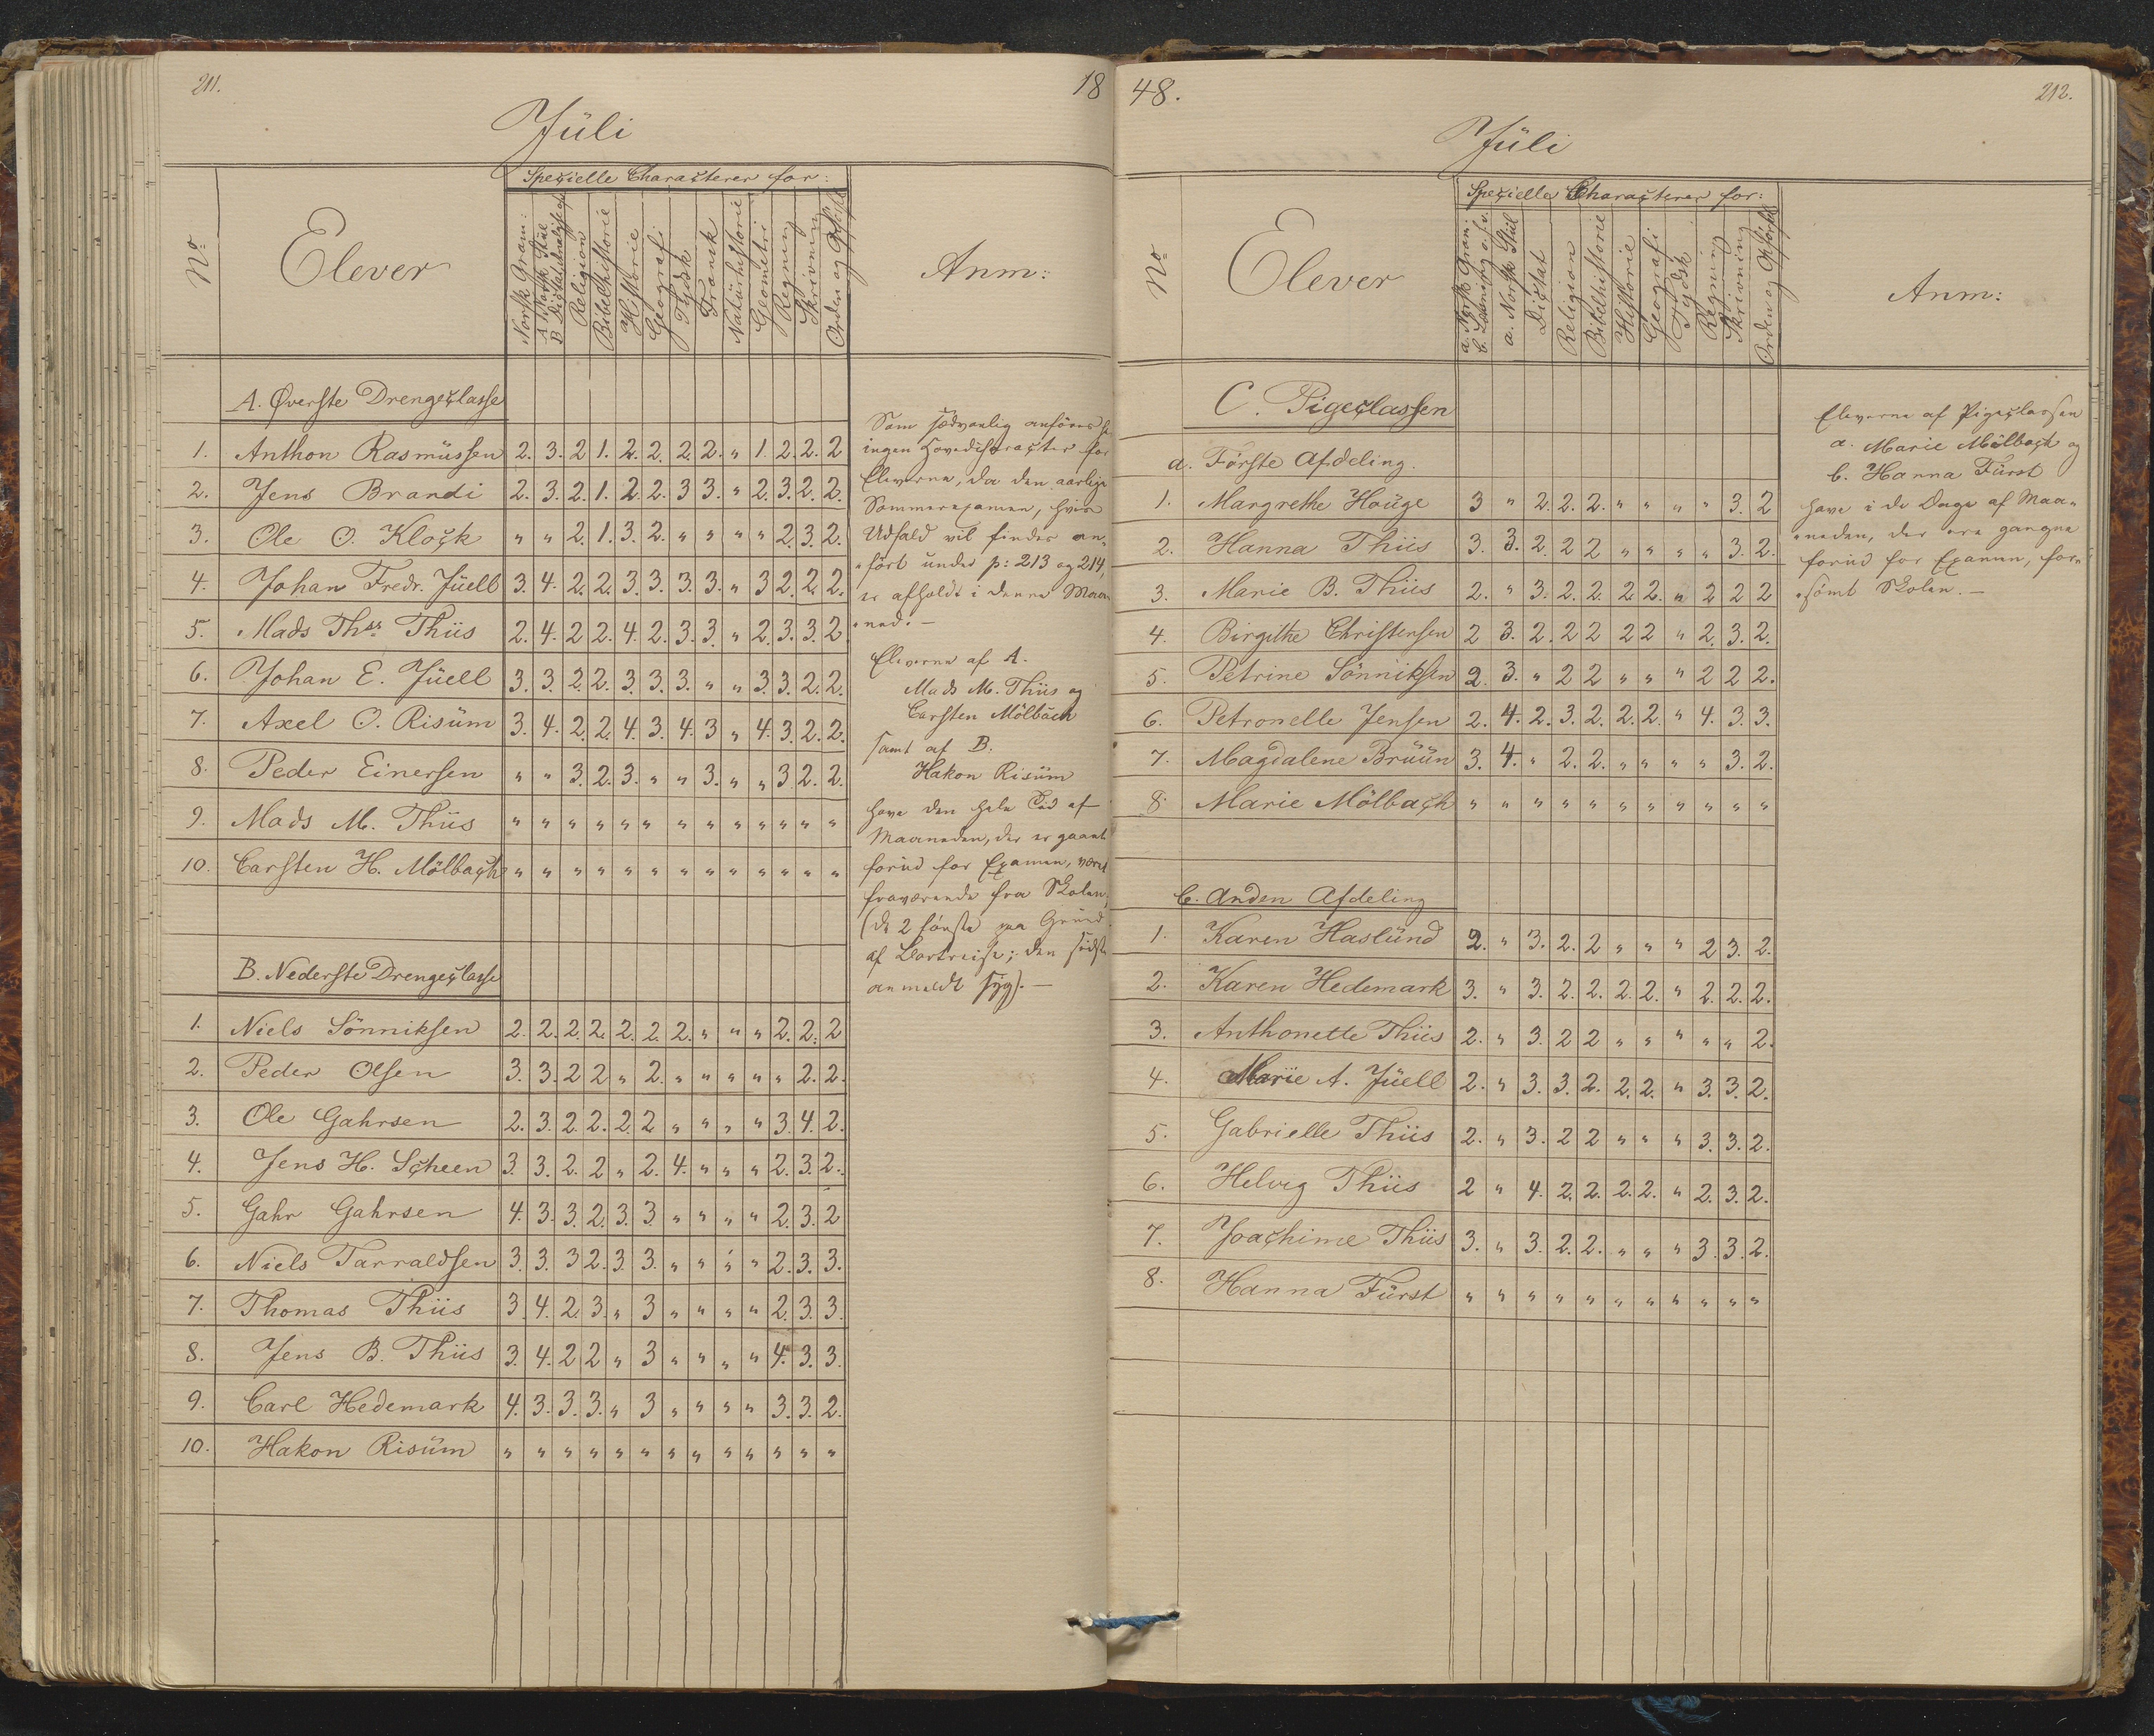 211.
18
Jüli
No
Elever
Specielle Characterer for:
Norsk Gram:
A. Norsk Stiil
B. Dictatanalyse ofs
Religion
Bibelhistorie
Historie
Geografi
Tydsk
Fransk
Natürhistorie
Geometri
Regning
Skrivning
Orden og Opførsel
Anm:
A. Øverste Drengeclasse
1. Anthon Rasmüssen 2. 3. 2 1. 2. 2. 2. 2. " 1. 2. 2. 2
2. Jens Brandi 2. 3. 2. 1. 2. 2. 3 3. " 2. 3. 2. 2.
3. Ole O. Klock " " 2. 1. 3. 2. " " " " 2. 3. 2.
4. Johan Fredr. Jüell 3. 4. 2. 2. 3. 3. 3. 3. " 3 2. 2. 2.
5. Mads Thss. Thiis 2. 4. 2 2. 4. 2. 3. 3. " 2. 3. 3. 2
6. Johan E. Jüell 3. 3. 2. 2. 3. 3. 3. " " 3. 3. 2. 2.
7. Axel O. Risüm 3. 4. 2. 2. 4. 3. 4. 3 " 4. 3. 2. 2.
8. Peder Einersen " " 3. 2. 3. " " 3. " " 3 2. 2.
9. Mads M. Thiis " " " " " " " " " " " " "
10. Carsten H. Mölbach " " " " " " " " " " " " "
B. Nederste Drengeclasse
1. Niels Sönniksen 2. 2. 2. 2. 2. 2. 2. " " " 2. 2. 2
2. Peder Olsen 3. 3. 2 2. " 2. " " " " " 2. 2.
3. Ole Gahrsen 2. 3. 2. 2. 2. 2. " " " " 3. 4. 2.
4. Jens H. Scheen 3. 3. 2. 2 " 2. 4. " " " 2. 3. 2.
5. Gahr Gahrsen 4. 3. 3. 2. 3. 3. " " " " 2. 3. 2
6. Niels Tarraldsen 3. 3. 3 2. 3. 3. " " " " 2. 3. 3.
7. Thomas Thiis 3. 4. 2. 3. " 3 " " " " 2. 3. 3.
8. Jens B. Thiis 3. 4. 2 2 " 3 " " " " 4. 3. 3.
9. Carl Hedemark 4. 3. 3. 3. " 3 " " " " 3. 3. 2.
10. Hakon Risüm " " " " " " " " " " " " "
Som sædvanlig anføres
ingen Hovedcharacter for
Eleverne, da den aarlige
Sommerexamen, hvis
Udfald vil findes an-
ført under p: 213 og 214,
er afholdt i denne Maa-
ned. —
Eleverne af A.
Mads M. Thiis og
Carsten Mölbach
samt af B.
Hakon Risüm
have den hele Tid af
Maaneden, der er gaaet
forud for Examen, været
fraværende fra Skolen,
(de 2 første paa Grund
af Bortreise; den sidste
anmeldt syg). —
48.
212.
Jüli
No
Elever
Specielle Characterer for:
a. Norsk Gram:
b. Læsning o.s.v.
a. Norsk Stiil
Dictat
Religion
Bibelhistorie
Historie
Geografi
Tydsk
Regning
Skrivning
Orden og Opførsel
Anm:
C. Pigeclassen
a. Første Afdeling.
1. Margrethe Houge 3 " 2. 2. 2. " " " " 3. 2
2. Hanna Thiis 3. 3. 2. 2 2 " " " " 3. 2.
3. Marie B. Thiis 2. " 3. 2. 2. 2. 2. " 2 2 2
4. Birgithe Christensen 2 3. 2. 2 2 2 2 " 2. 3. 2.
5. Petrine Sönniksen 2. 3. " 2 2 " " " 2 2 2.
6. Petronelle Jensen 2. 4. 2. 3. 2. 2. 2. " 4. 3. 3.
7. Magdalene Brüün 3. 4. " 2. 2. " " " " 3. 2.
8. Marie Mölbach " " " " " " " " " " "
b. Anden Afdeling
1. Karen Haslünd 2. " 3. 2. 2 " " " 2 3. 2.
2. Karen Hedemark 3. " 3. 2. 2. 2. 2. " 2. 2. 2.
3. Anthonette Thiis 2. " 3. 2 2 " " " " " 2.
4. Marie A. Jüell 2. " 3. 3. 2. 2. 2. " 3. 3. 2.
5. Gabrielle Thiis 2. " 3. 2 2 " " " 3. 3. 2.
6. Helvig Thiis 2 " 4. 2. 2. 2. 2. " 2. 3. 2.
7. Joachime Thiis 3. " 3. 2. 2. " " " 3. 3. 2.
8. Hanna Fürst " " " " " " " " " " "
Eleverne af Pigeclassen
a. Marie Mölbach og
b. Hanna Fürst
have i de Dage af Maa-
neden, der ere gangne
forud for Examen, for-
sömt Skolen. —